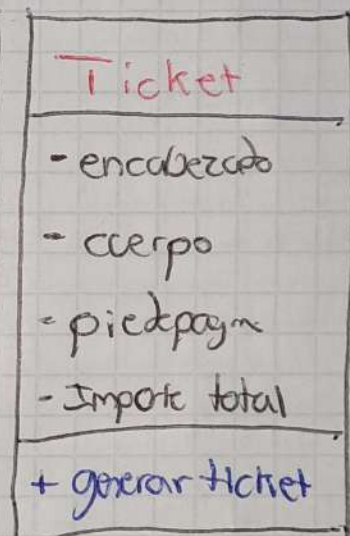 Ticket
- encabezado
- cuerpo
- piedepagn
- Importe total
+ generar ticket